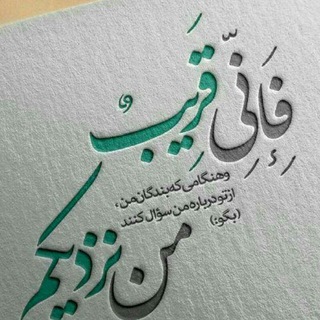 فَإِنِّي قَرِيبٌ
و هنگامی که بندگان من،
از تو درباره من سؤال کنند
(بگو:)
من نزدیکم